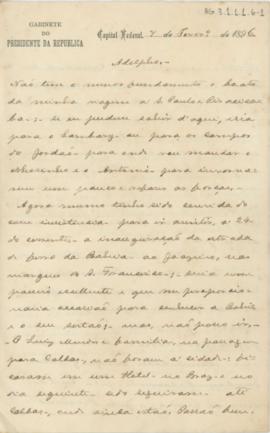 GABINETE
DO
PRESIDENTE DA REPUBLICA
Capital Federal, 7 de Fever.º de 1896
Adolpho,
Não tem o menor fundamento o boato
da minha viagem a S. Paulo e Piracicaba
bas: se eu pudera sahir d'aqui, iria
para o Lambary ou para os campos
do Jordão para onde vou mandar o
e Antonio para
um pouco e as forças.
Agora mesmo tenho sido convidado
com insistencia para ir assistir, a 24
do corrente, a inauguração da estrada
de ferro da Bahia ao Joazeiro, nas
margens do S. Francisco; seria um
passeio excellente e que me proporcio-
naria occasião para conhecer a Bahia
e o seu sertão; mas, não posso ir.
O Luiz e familia, na passagem
para Caldas, não foram á cidade: fi-
caram em um Hotel no Braz e no
dia seguinte seguiram até
Caldas, onde ainda estão. Passão bem.